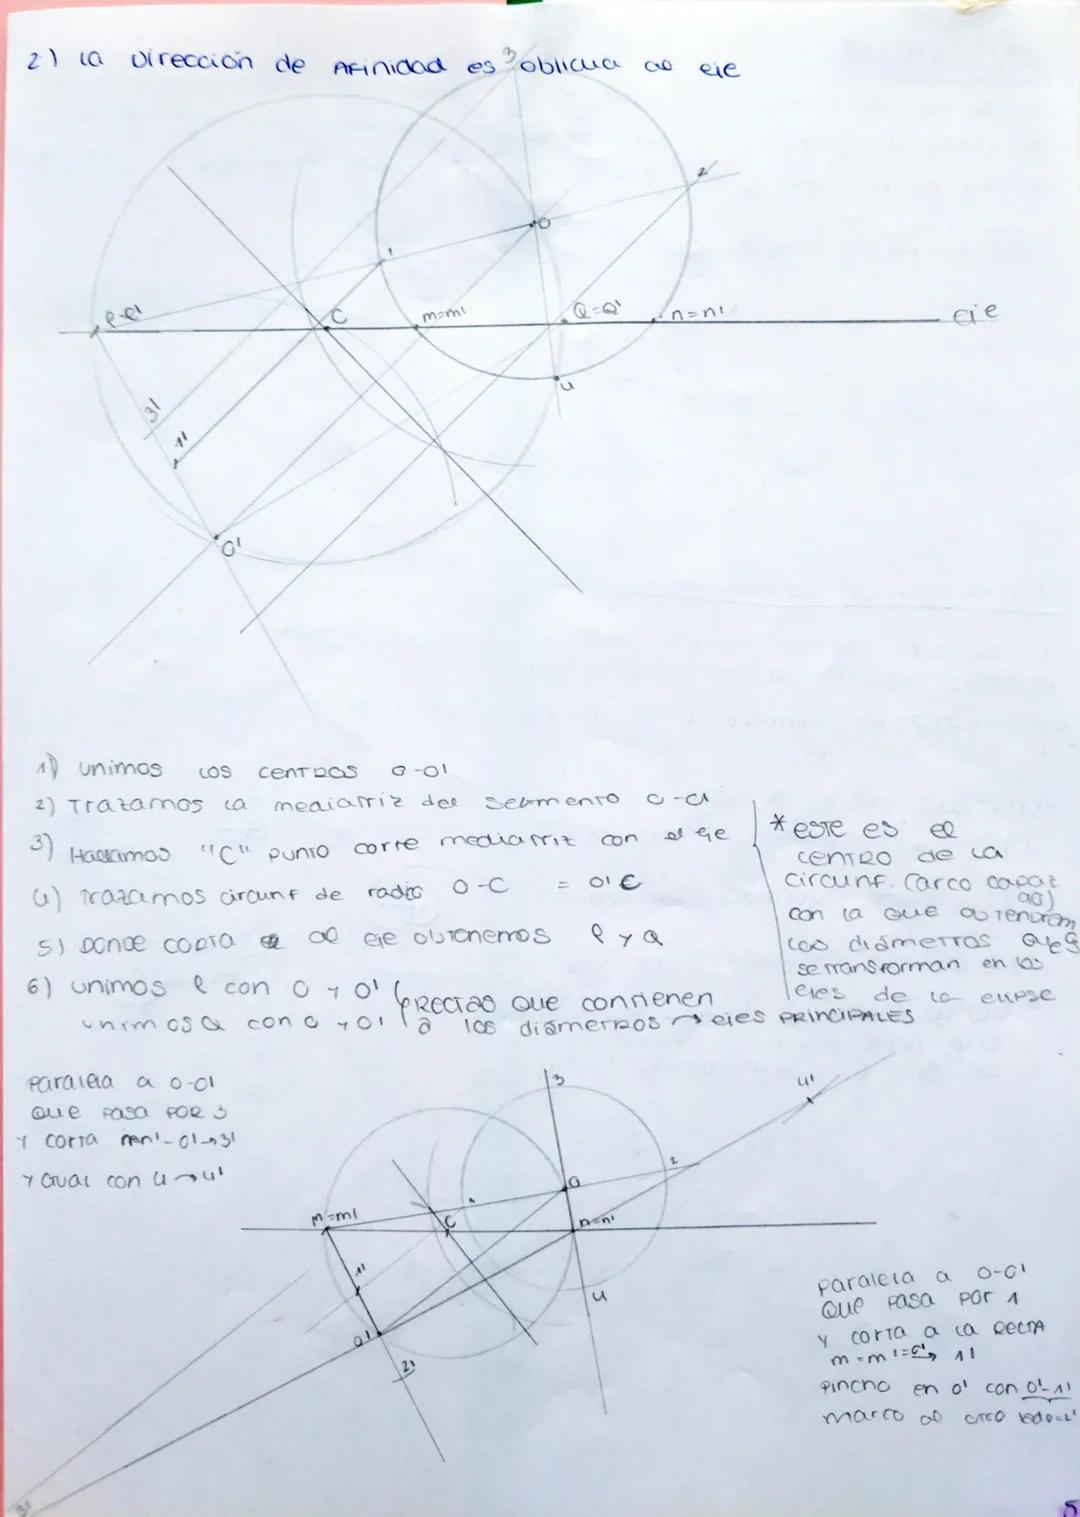 2) La Dirección de Afinidad es oblicua ao eje
3
2
O
1
P-P'
C
m=m'
Q=Q'
n=n'
eje
3'
1'
4
O'
1) unimos los centros O-O'
2) Trazamos la mediatriz del segmento O-O'
3) Hallamos "C" punto corte mediatriz con el eje
4) Trazamos circunf de radio O-C = O'C
5) Donde corta al eje obtenemos P y Q
6) unimos P con O y O'
unimos Q con O y O'
Rectas que contienen
a los diámetros → ejes PRINCIPALES
* este es el
centro de la
circunf. (arco capaz
90)
con la que obtendrem
los diámetros que
se transforman en los
ejes de la elipse
Paralela a O-O'
que pasa por 3
y corta m=m'-O'→3'
y igual con 4→4'
3
4'
2
O
1
m=m'
C
n=n'
1'
4
O'
2'
3'
Paralela a O-O'
que pasa por 1
y corta a la recta
m=m'=O'→ 1'
Pincho en O' con O'-1'
marco al otro lado=2'
5